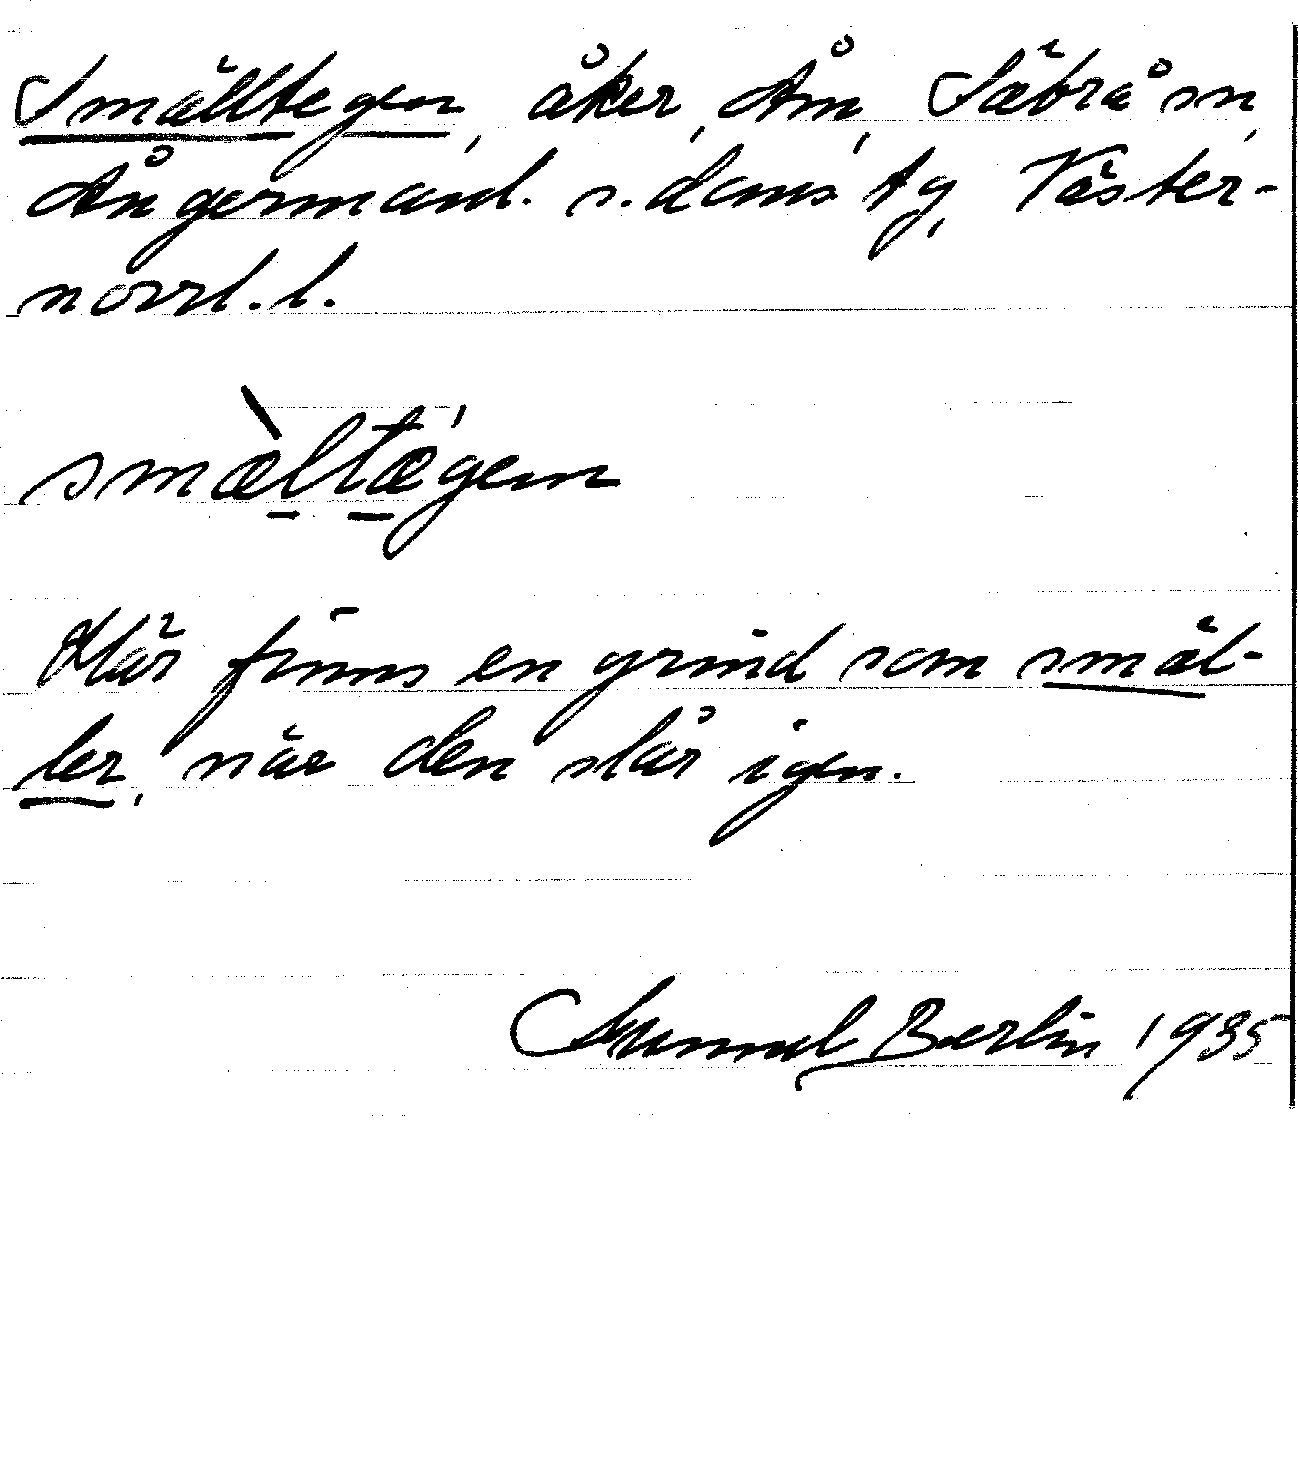 Smälltegen, åker, Ån, Säbrå sn,
Ångermanl. s. doms. tg, Väster-
norrl. l.
smæ̀ltægen
Här finns en grind som smäl-
ler, när den slår igen.
Gunnul Berlin 1935